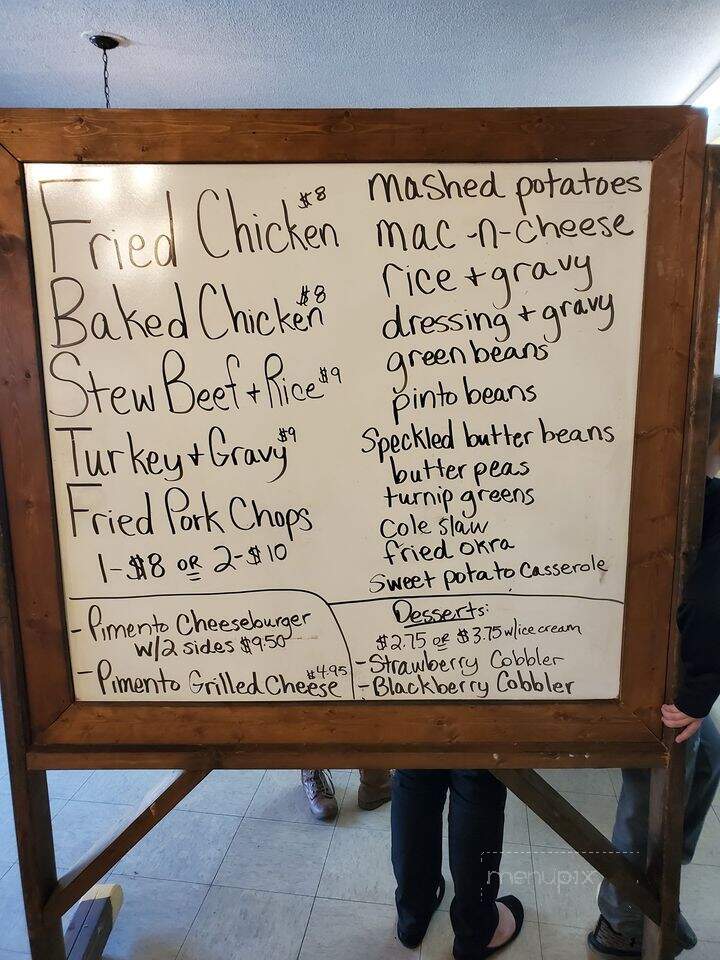 Fried Chicken $8
Baked Chicken $8
Stew Beef + Rice $9
Turkey + Gravy $9
Fried Pork Chops
1-$8 OR 2-$10
- Pimento Cheeseburger
w/2 sides $9.50
- Pimento Grilled Cheese $4.95
mashed potatoes
mac-n-cheese
rice + gravy
dressing + gravy
green beans
pinto beans
Speckled butter beans
butter peas
turnip greens
Cole slaw
fried okra
Sweet potato Casserole
Desserts:
$2.75 OR $3.75 w/ice cream
- Strawberry Cobbler
- Blackberry Cobbler
menupix